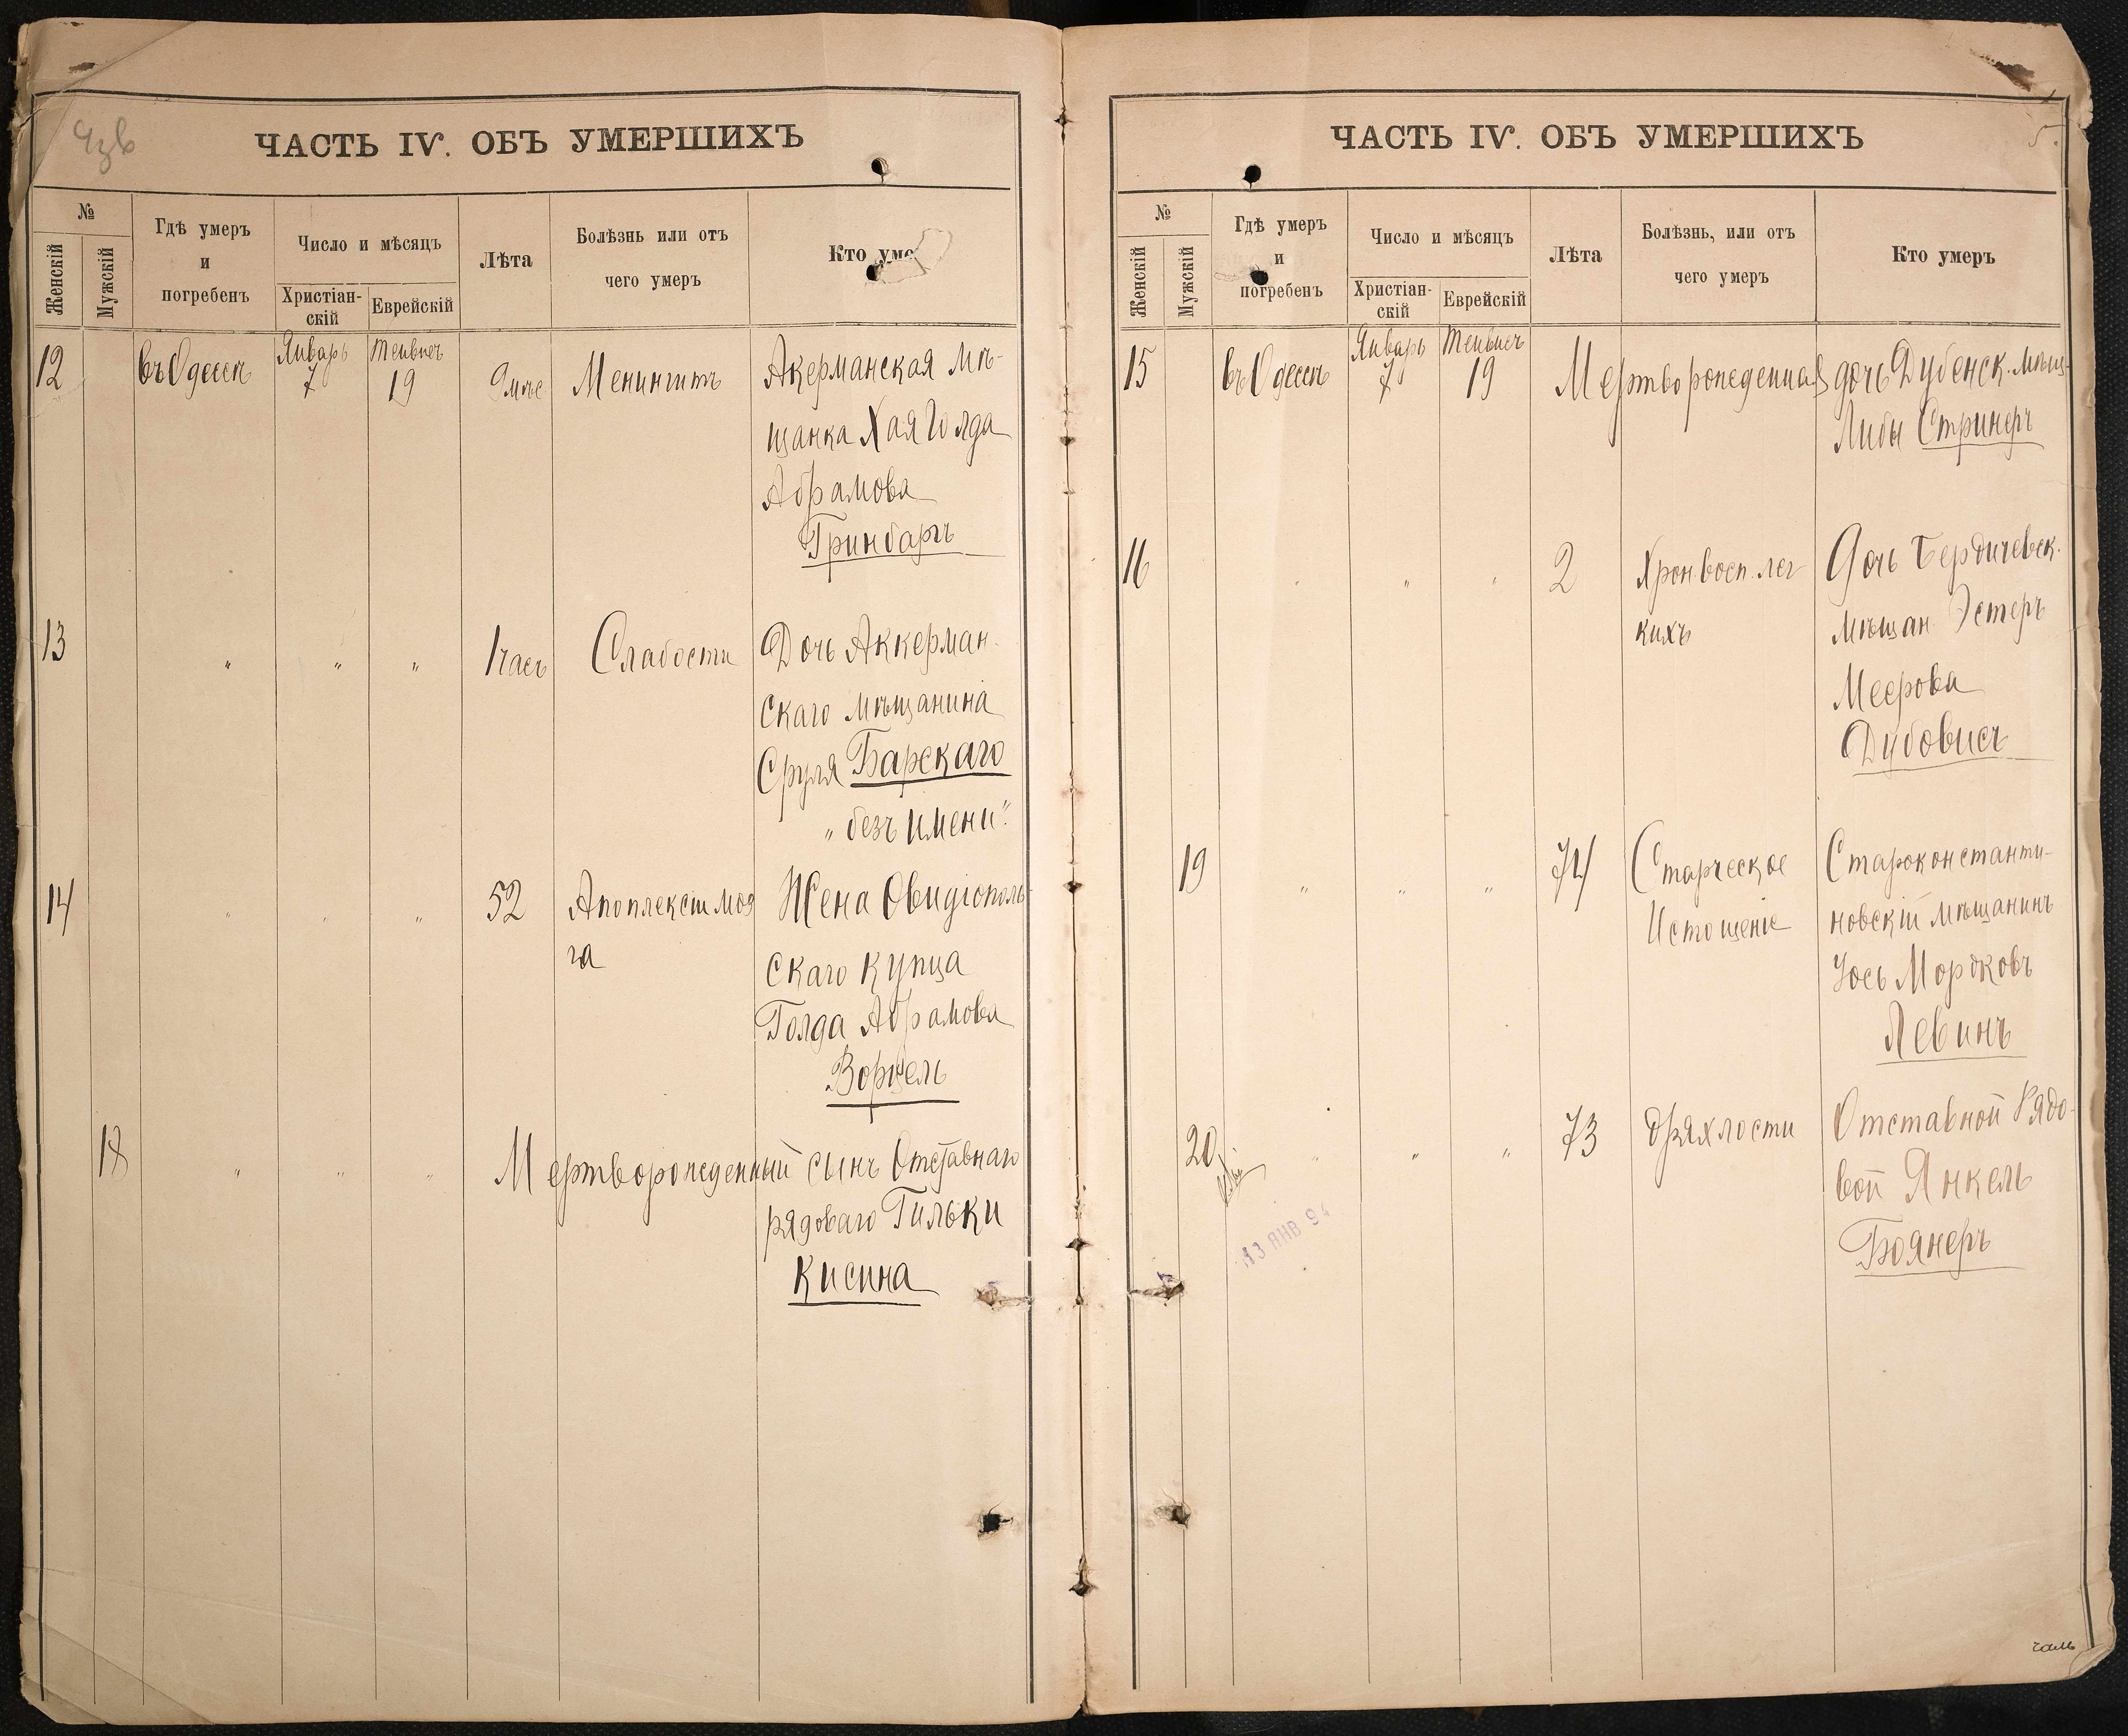 ЧАСТЬ IV. ОБЪ УМЕРШИХЪ
№
Женскій
Мужскій
Гдѣ умеръ
и
погребенъ
Число и мѣсяцъ
Христіан-
скій
Еврейскій
Лѣта
Болѣзнь или отъ
чего умеръ
Кто уме
12 въ Одессѣ Январь 7 Тейвисъ 19 9 мѣс Менингитъ Акерманская мѣ-
щанка Хая Голда
Абрамова
Гринбаргъ
13 " " " 1 часъ Слабости Дочь Аккерман-
скаго мѣщанина
Сруля Барскаго
„безъ имени".
14 " " " 52 Апоплексіи моз Жена Овидіополь-
га скаго купца
Голда Абрамова
Ворцель
18 " " " Мертворожденный сынъ Отставнаго
рядоваго Гильки
Кисина
ЧАСТЬ IV. ОБЪ УМЕРШИХЪ
5.
№
Женскій
Мужскій
Гдѣ умеръ
и
погребенъ
Число и мѣсяцъ
Христіан-
скій
Еврейскій
Лѣта
Болѣзнь, или отъ
чего умеръ
Кто умеръ
15 въ Одессѣ Январь 7 Тейвисъ 19 Мертворожденная дочь Дубенск. мѣщ-
Либы Стринеръ
16 " " " 2 Хрон. восп. лег Дочь Бердичевск.
кихъ мѣщан. Эстеръ
Меерова
Дубовисъ
19 " " " 74 Старческое Староконстанти-
Истощеніе новскій мѣщанинъ
Іось Мордковъ
Левинъ
20 " " " 73 Дряхлости Отставной Рядо-
вой Янкель
Боянеръ
13 ЯНВ 94